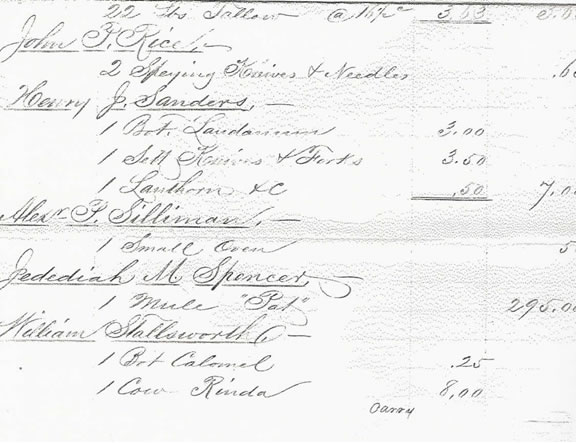 22 lbs Tallow @ 16½c 3.63 3.6
John F. Rice,
2 Speying Knives & Needles .6
Henry J. Sanders,
1 Bot. Laudanum 3.00
1 Sett Knives & Forks 3.50
1 Lanthorn &C .50 7.0
Alexr. F. Silliman,
1 Small Oven 5
Jedediah M Spencer,
1 Mule "Pat" 295.00
William Stallsworth,
1 Bot Calomel .25
1 Cow Rinda 8.00
Carry